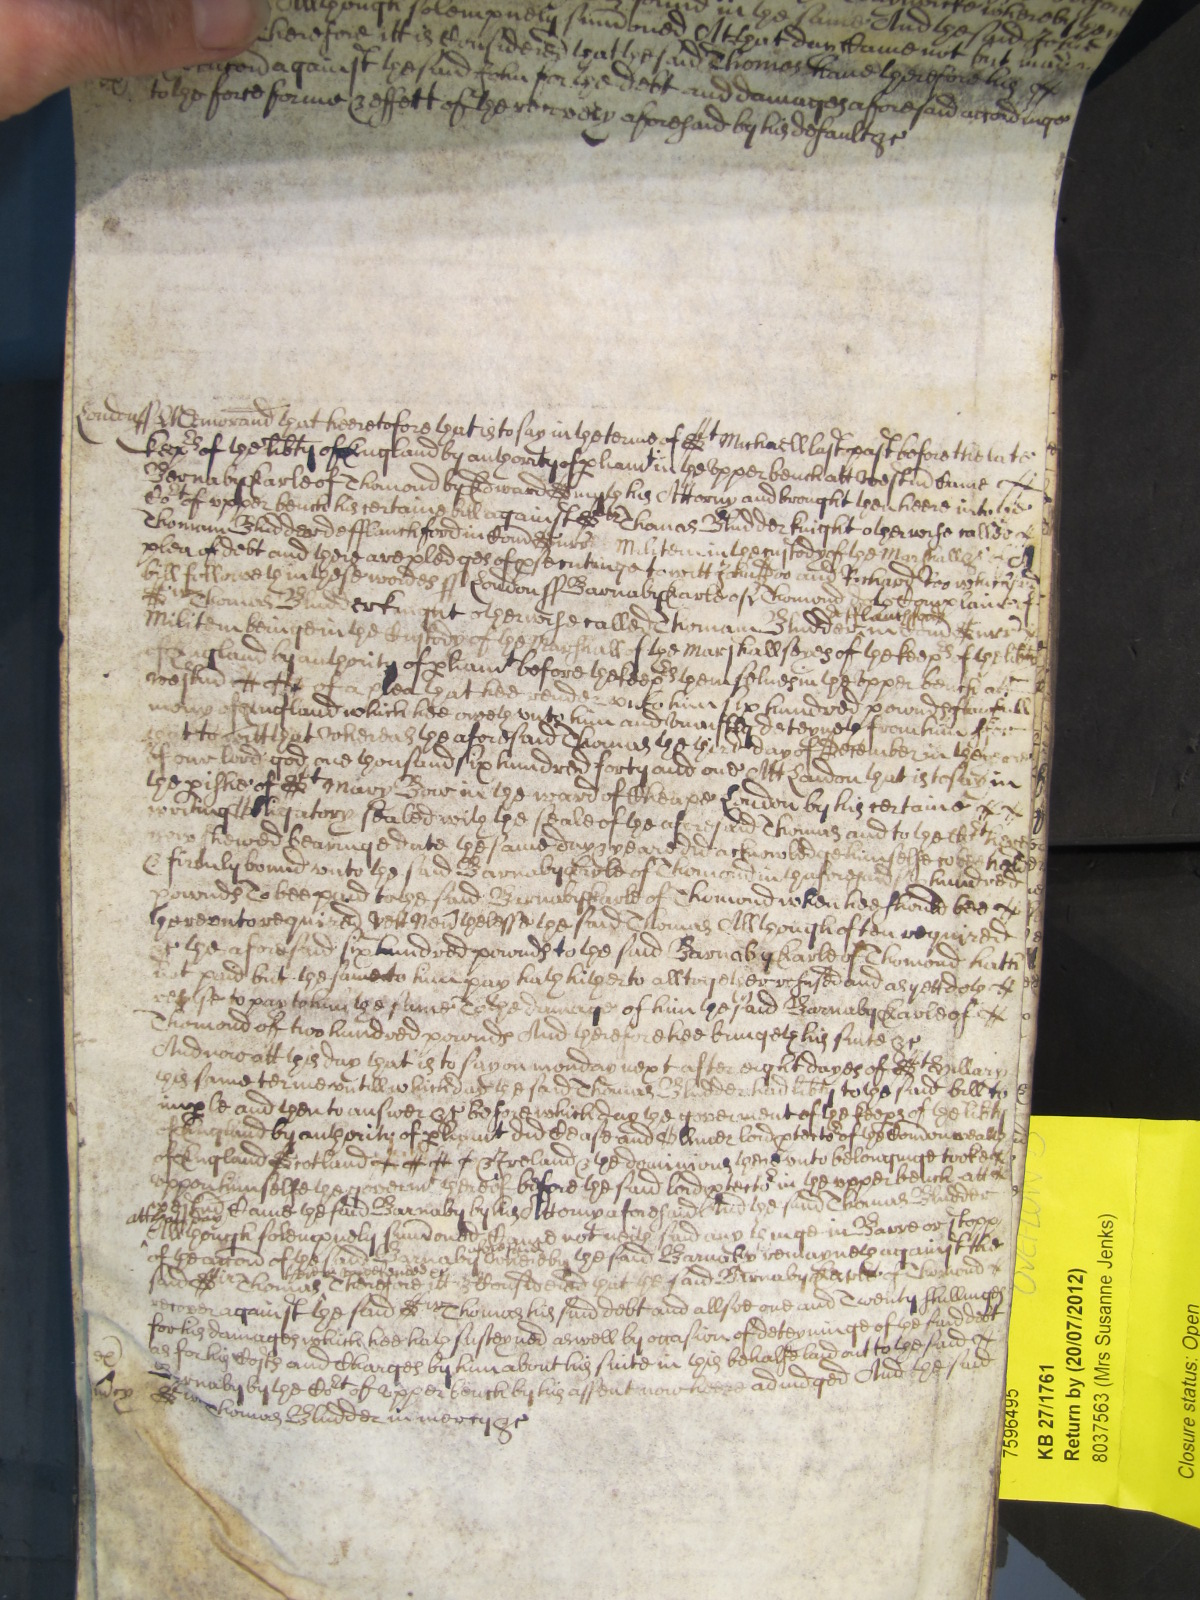 Allthough solempnely summoned Att that day Came not but made
Therefore itt is Considered that the said Thomas have therefore his
against the said John for the debt and damages aforesaid accordinge
to the force forme & effect of the recovery aforesaid by his default &c
London ss Memorand that heeretofore that is to say in the terme of St Michaell last past before the late
keeps of the libty of England by authority of pliamt in the upper bench att Westm Came
Barnaby Earle of Thomond by Edward Smyth his Attorny and brought then heere into the
Cort of upper bench his certaine bill against Sr Thomas Bludder knight otherwise called
Thomam Bludder de fflanchford in Com Surr Militem in the custody of the Marshall &c of a
plea of debt and there are pledges of psecutinge to witt John Doo and Richard Roo which said
bill followeth in these wordes ss London ss Barnaby Earle of Thomond doth Complaine of
Sr Thomas Bludder knight otherwise called Thomam Bludder de fflanchford in Com Surr
Militem beinge in the Custody of the Marshall of the Marshallsea of the keeps of the libty
of England by authority of pliamt before the keeps themselves in the upper bench att
Westm of a plea that hee render unto him six hundred pownds of lawfull
mony of England which hee oweth unto him and uniustly deteyneth from him
to witt that whereas the aforesaid Thomas the third day of December in the yeare
of our lord god one thousand six hundred forty and one Att London that is to say in
the pishe of St Mary Bow in the ward of Cheape London by his certaine
writing Obligatory sealed with the seale of the aforesaid Thomas and to the Cort heere
now shewed bearinge date the same day & yeare did acknowledge himselfe to bee held
& firmly bound unto the said Barnaby Earle of Thomond in the aforesaid six hundred
pownds To bee paid to the said Barnaby Earle of Thomond when hee should bee
thereunto required Yett Nevthelesse the said Thomas Allthough often required
the aforesaid six hundred pownds to the said Barnaby Earle of Thomond hath
not paid but the same to him to pay hath hitherto alltogether refused and as yett doth
refuse to pay to him the same To the damage of him the said Barnaby Earle of
Thomond of two hundred pownds And therefore hee bringeth his suite &c
And now att this day that is to say on monday next after eight dayes of St Hillary
this same terme untill which day the said Thomas Bludder had libty to the said bill to
imple and then to answer &c before which day the government of the keeps of the libty
of England by authority of pliamt did Cease and Oliver lord ptector of the Comonwealth
of England Scotland & Ireland & the dominions thereunto belonginge tooke
uppon himselfe the governmt thereof before the said lord ptector in the upper bench att
Westm Came the said Barnaby by his Attorny aforesaid And the said Thomas Bludder
att that day
Allthough solempnely summoned Came not neither said any thinge in Barre or stopp
of the accon of the said Barnaby whereby the said Barnaby remayneth against the
said Sr Thomas Therefore itt is Considered that the said Barnaby Earle of Thomond
recover against the said Sr Thomas his said debt and allsoe one and Twenty shillings
for his damages which hee hath susteyned aswell by occasion of deteyninge of the said debt
as for his Costs and Charges by him about his suite in this behalfe laid out to the said
Barnaby by the Cort of upper bench by his assent now heere adiudged And the said
Sr Thomas Bludder in mercy &c
mcy
OVERLOWS
7596495
KB 27/1761
Return by (20/07/2012)
8037563 (Mrs Susanne Jenks)
Closure status: Open